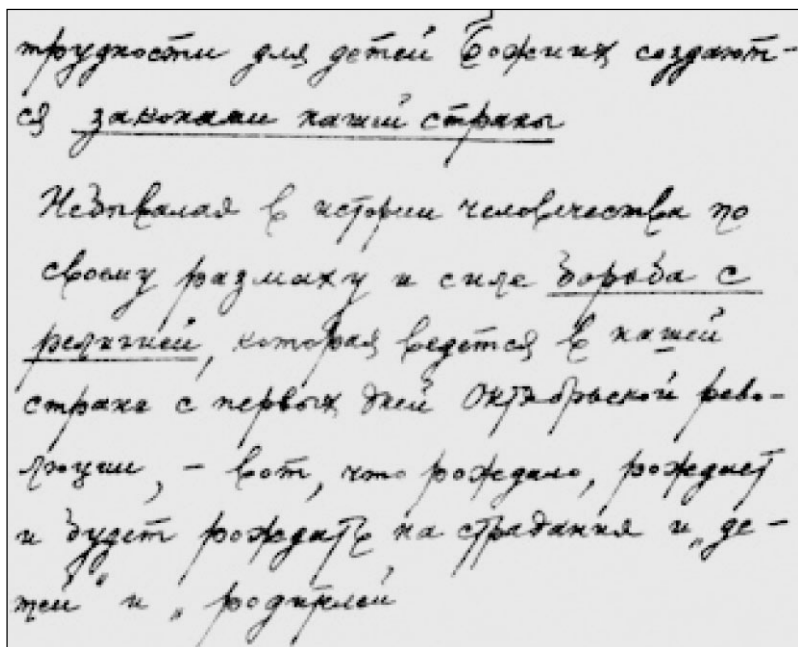 трудности для детей Божиих создают-
ся законами нашей страны
Небывалая в истории человечества по
своему размаху и силе борьба с
религией, которая ведется в нашей
стране с первых дней Октябрьской рево-
люции, - вот, что рождало, рождает
и будет рождать на страдания и „де-
тей" и „родителей